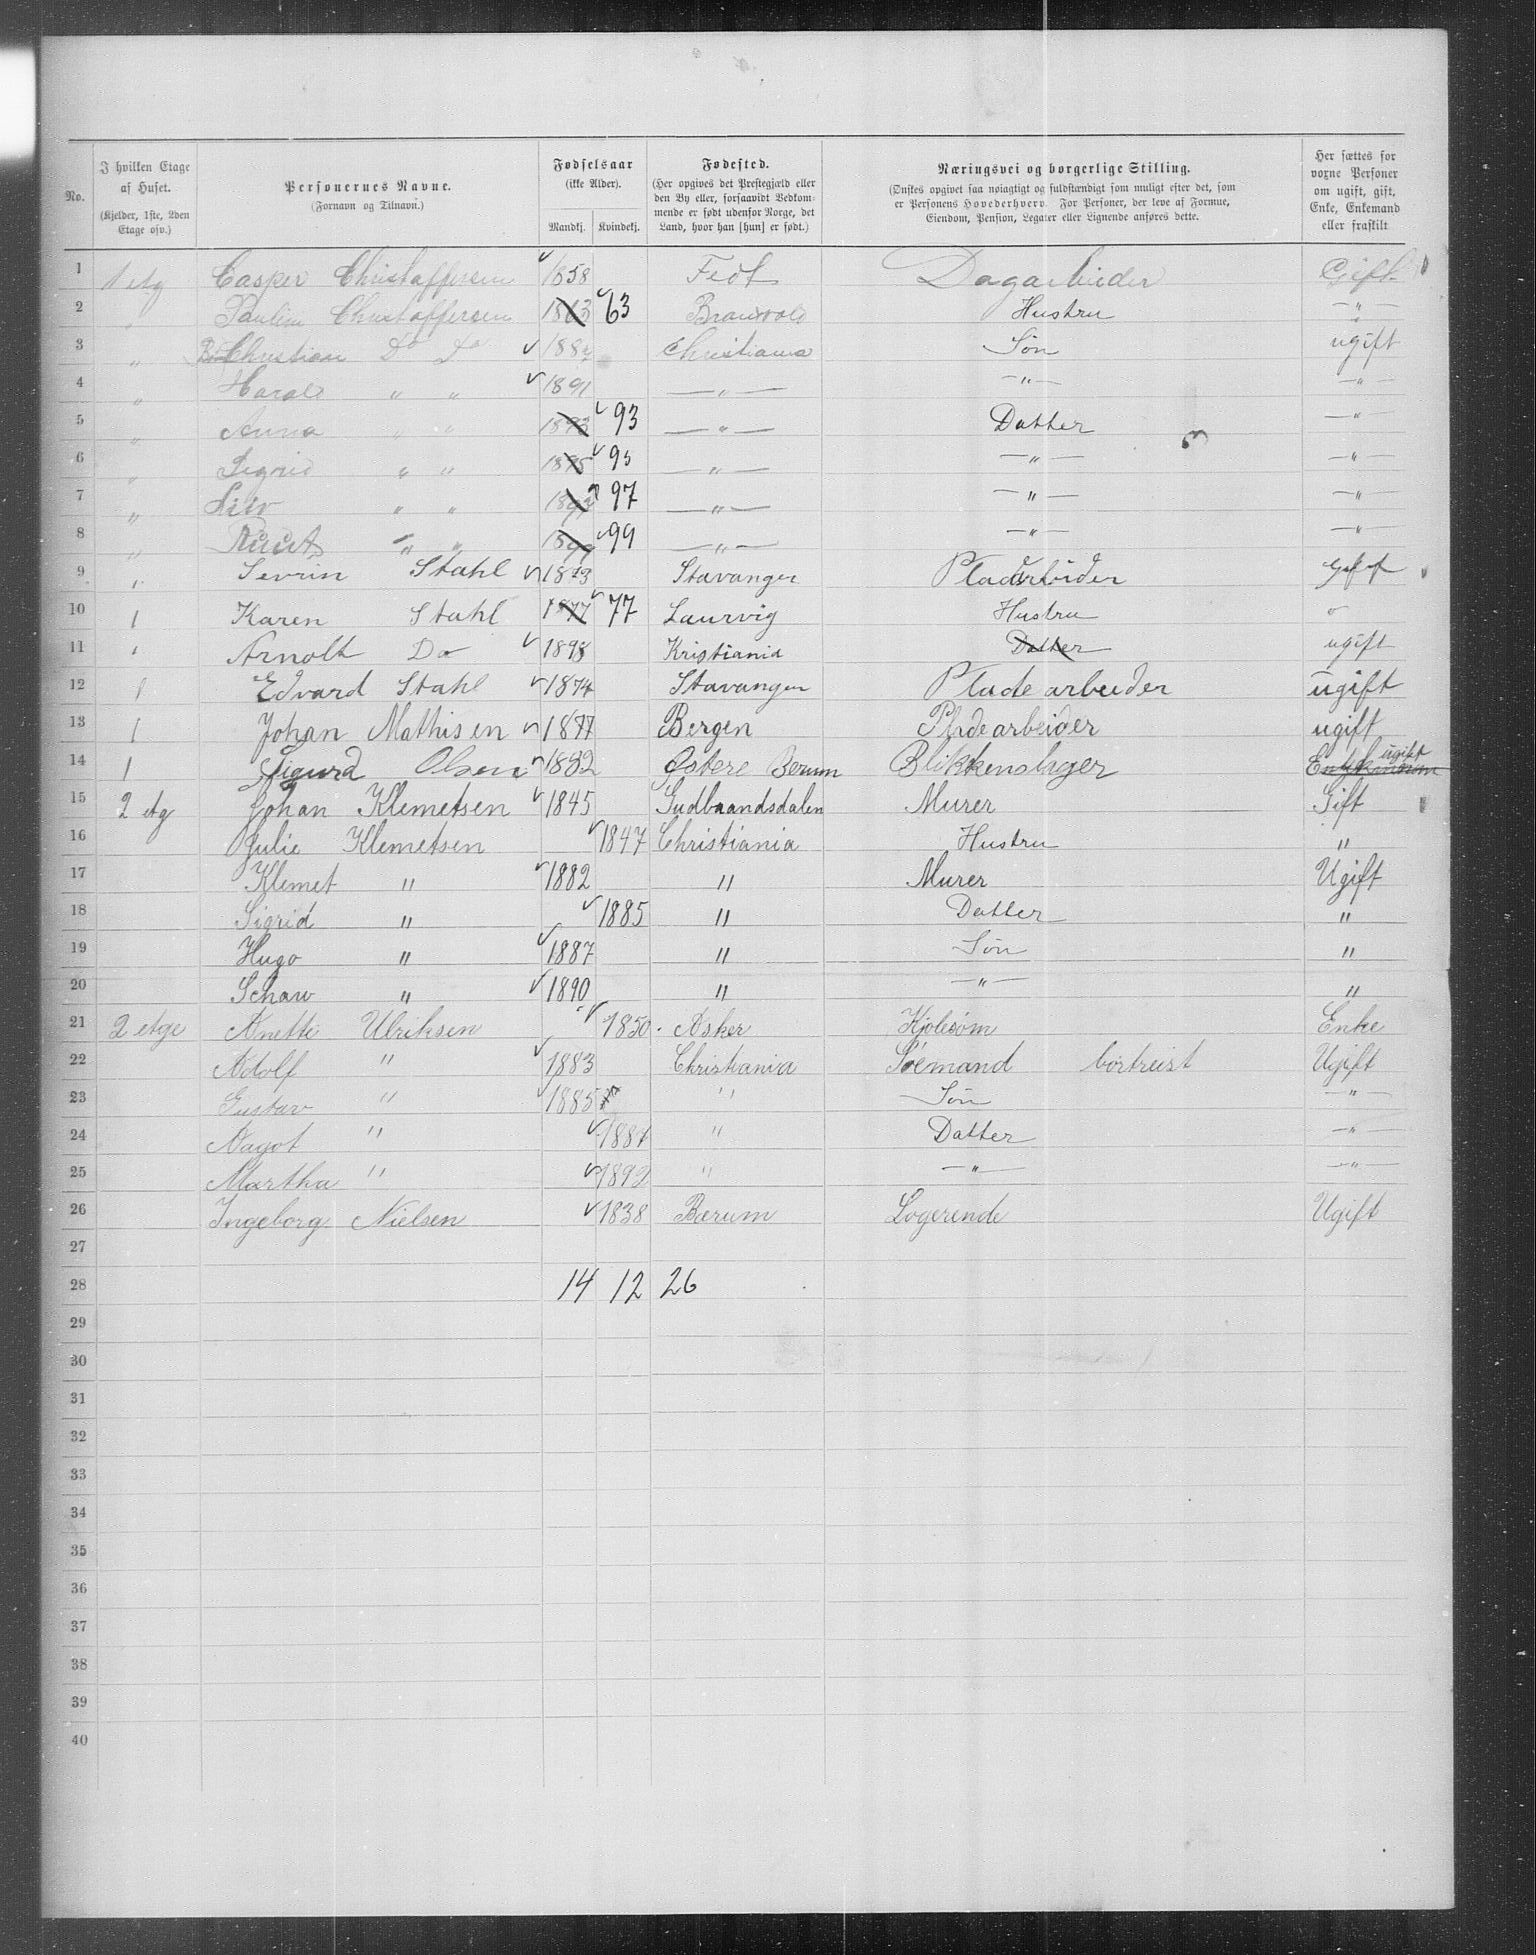 No.
I hvilken Etage af Huset.
(Kjelder, 1ste, 2den Etage osv.)
Personernes Navne.
(Fornavn og Tilnavn.)
Fødselsaar
(ikke Alder).
Mandkj. Kvindekj.
Fødested.
(Her opgives det Præstegjæld eller den By eller, forsaavidt Vedkommende er født udenfor Norge, det Land, hvor han [hun] er født.)
Næringsvei og borgerlige Stilling.
(Ønskes opgivet saa nøiagtigt og fuldstændigt som muligt efter det, som er Personens Hovederhverv. For Personer, der leve af Formue, Eiendom, Pension, Legater eller Lignende anføres dette.)
Her sættes for voxne Personer om ugift, gift, Enke, Enkemand eller fraskilt
1 1 etg Casper Christoffersen 1858 Fedt Dagarbeider Gift
2 " Paulin Christoffersen 1863 63 Hustru — " —
3 " Christian Do Do 188 Christiania Søn ugift
4 " Harald " " 1891 — " — — " — — " —
5 " Anna " " 1893 93 — " — Datter — " —
6 " Sigrid " " 1895 95 — " — — " — — " —
7 " Liv " " 1897 97 — " — — " — — " —
8 " " " 1899 99 — " — — " — — " —
9 " Sevrin Stahl 1873 Stavanger Pladearbeider Gift
10 1 Karen Stahl 1877 77 Laurvig Hustru "
11 " Arnolt Do 1898 Kristiania Datter ugift
12 1 Edvard Stahl 1874 Stavanger Pladearbeider ugift
13 1 Johan Mathisen 1877 Bergen Pladearbeider ugift
14 1 Sigurd Olsen 1882 Østere Berum Blikkenslager Enkemann ugift
15 2 etg Johan Klemetsen 1845 Gudbrandsdalen Murer Gift
16 Julie Klemetsen 1847 Christiania Hustru "
17 Klemet " 1882 " Murer Ugift
18 Sigrid " 1885 " Datter "
19 Hugo " 1887 " Søn "
20 Schaw " 1890 " — " — "
21 2 etge Anette Ulriksen 1850 Asker Kjolesøm Enke
22 Adolf " 1883 Christiania Søemand bortreist Ugift
23 Gustav " 1885 " Søn — " —
24 Aagot " 1887 " Datter — " —
25 Martha " 1892 " — " — — " —
26 Ingeborg Nielsen 1838 Bærum Logerende Ugift
27
28 14 12 26
29
30
31
32
33
34
35
36
37
38
39
40